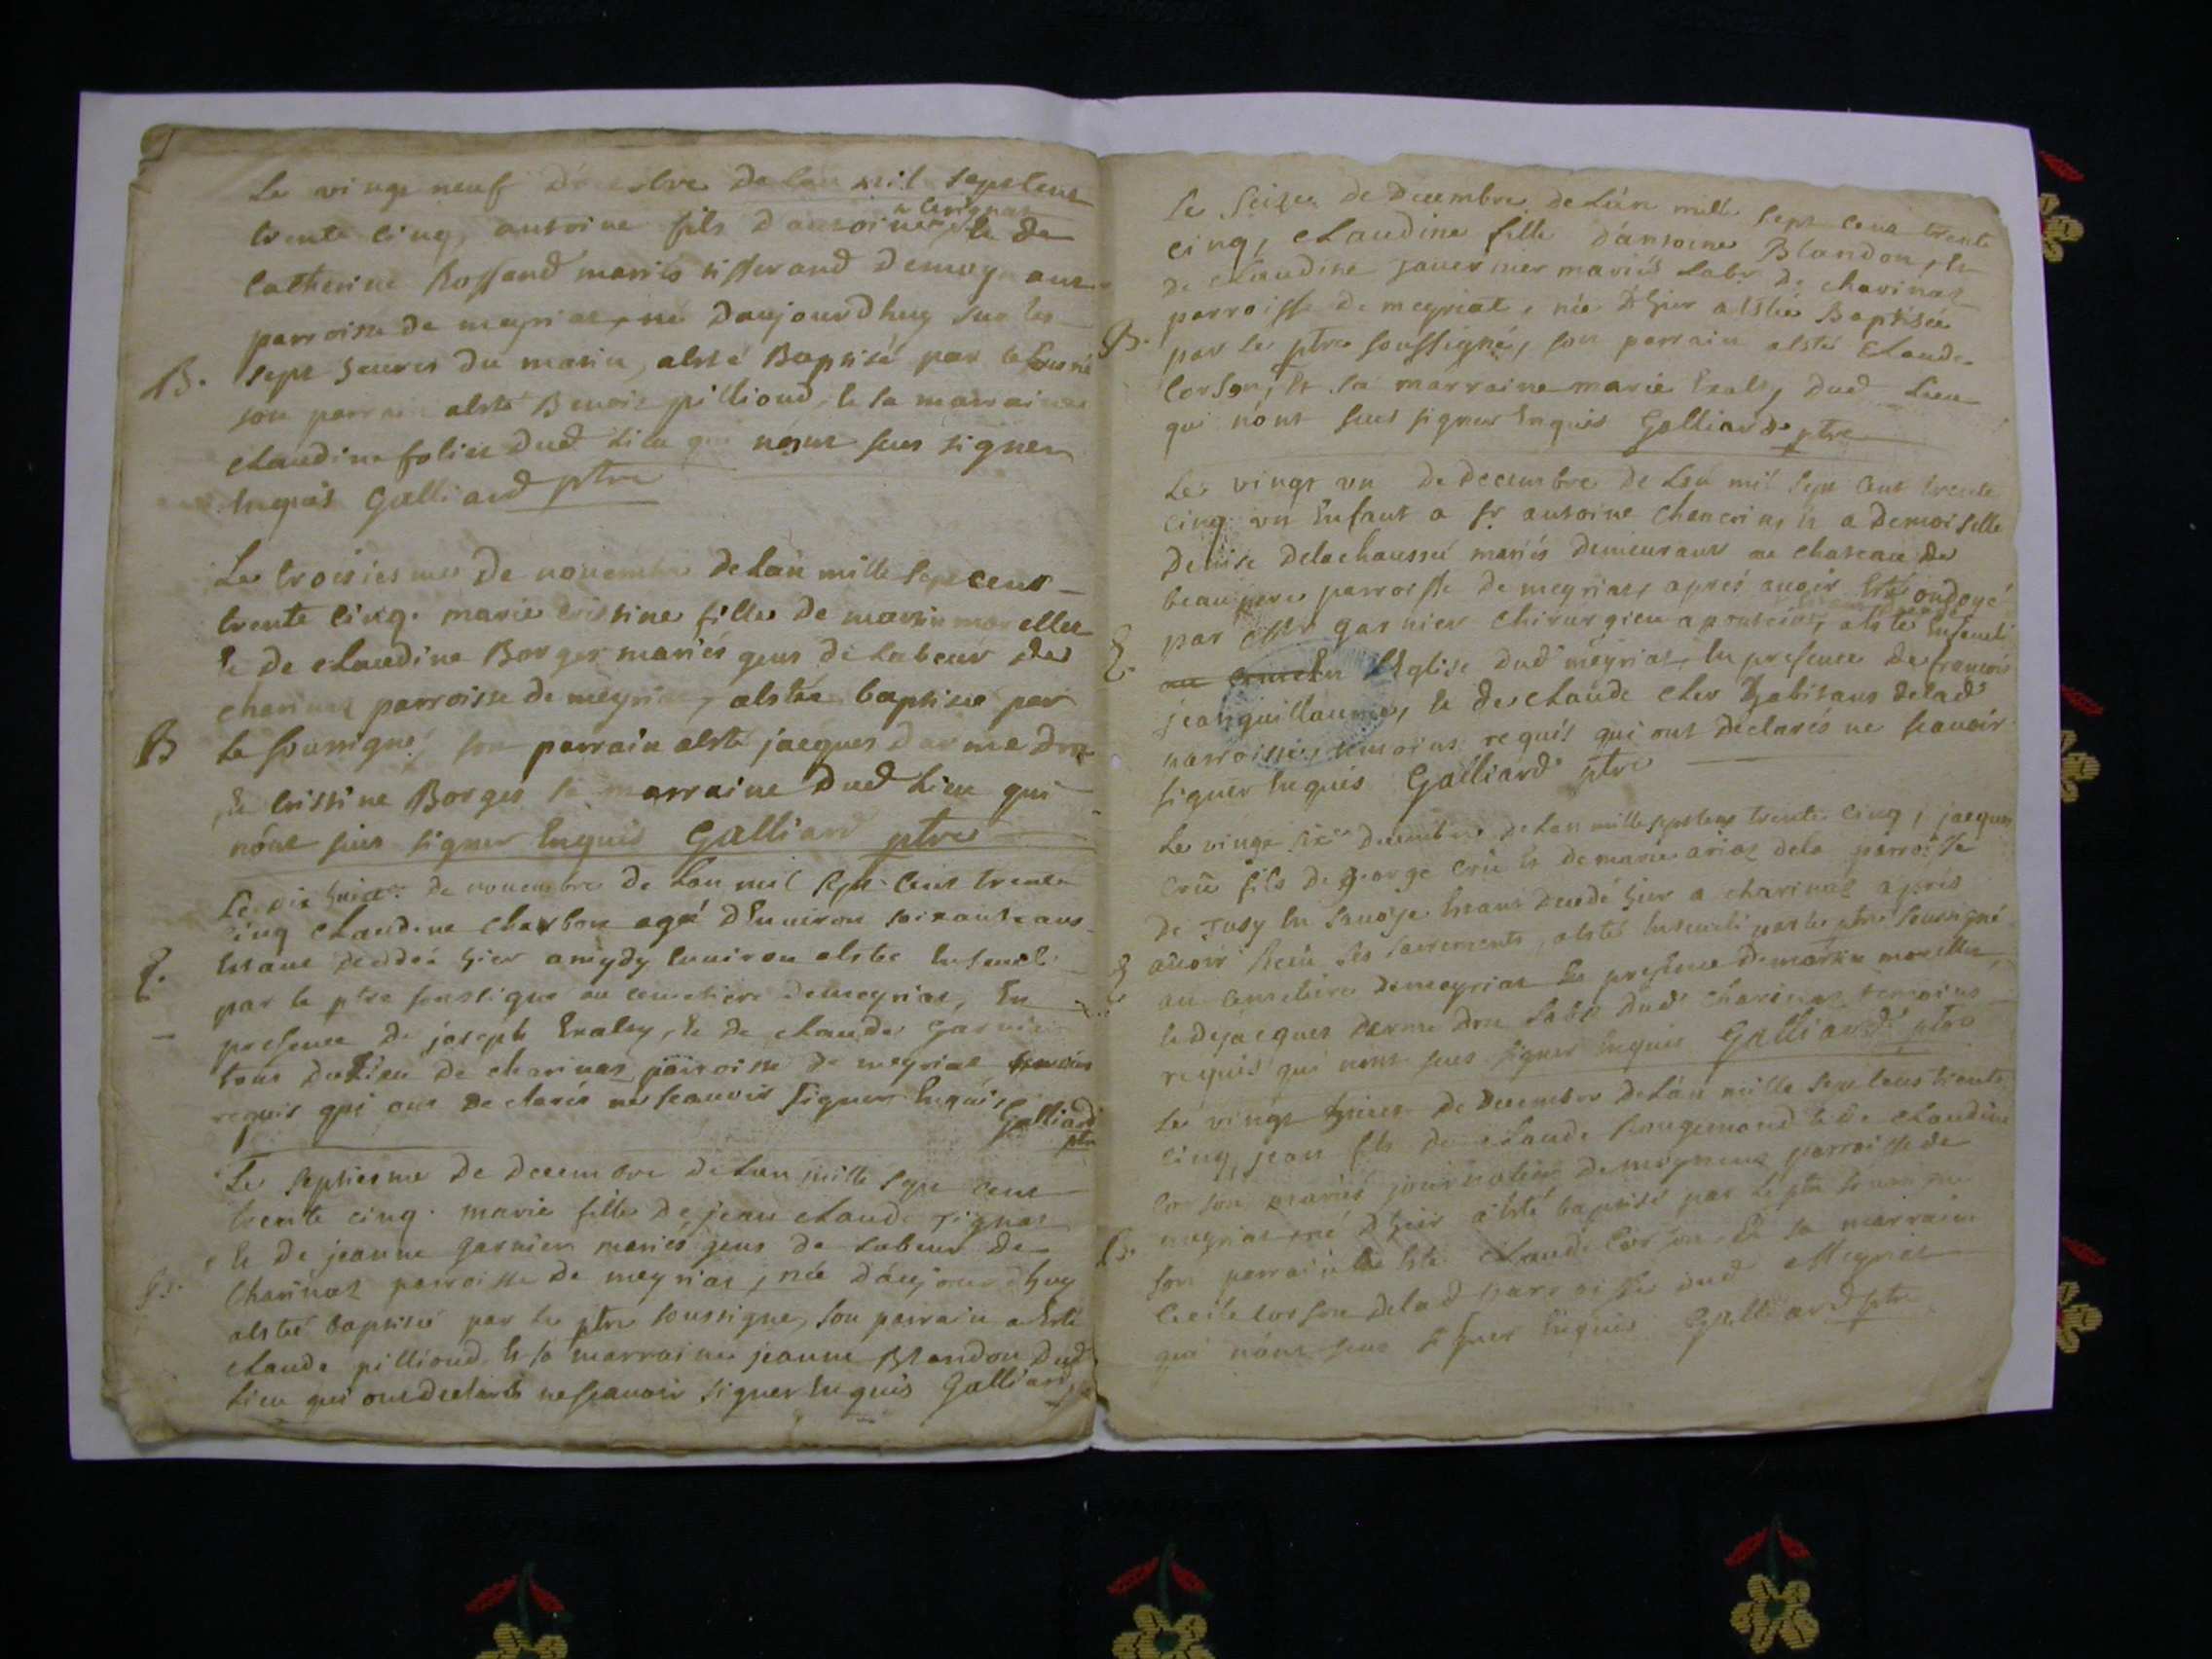 Le vingt neuf d'octobre de lan mil septcent
trente cinq, antoine fils dantoine & de
Catherine Rossand mariés tisserand
parroisse de meyriat, né daujourdhuy sur les
B. sept heures du matin, atsté Baptisé par le
son parrain atsté Benoit pillioud, & sa marraine
claudine folliet dud Lieu qui nónt sceu signer
Enquis Galliard ptre
Le troisiesme de novembre de lán mille sept cent
trente cinq. marie cristine fille de martin morellet
& de claudine Borges mariés gens de Labeur de
charinaz parroisse de meyriat, atstée baptisée par
B le soussigné son parrain atsté jacques darmedru
& cristine Borges sa marraine dud Lieu qui
nónt sceu signer Enquis Galliard ptre
Le dix huict de novembre de Lan mil sept cent trente
cinq claudine charbon agée d'Environ soixante ans
Estant deceddée hier amydy Environ atstée Enseveli
par le ptre soussigné au cemetiere de meyriat, En
presence de joseph & de claude garnier
tous du Lieu de charinaz parroisse de meyriat temoins
requis qui ont declarés ne scauoir signer Enquis
Galliard
ptre
Le septiesme de decembre de Lan mille sept cent
trente cinq. marie fille de jean claude
& de jeanne garnier mariés gens de Labeur de
charinaz parroisse de meyriat, née d'aujourdhuy
atsté baptisée par le ptre soussigné, son parrain a Esté
claude pillioud & sa marraine jeanne Blandon dud
Lieu qui ont declarés ne scauoir signer Enquis Galliard
Le seize de decembre de Lán mille sept cent trente
cinq, claudine fille d'antoine Blandon, &
de claudine mariés Labr de charinaz
parroisse de meyriat, née d'hier atstée Baptisée
B. par le ptre soussigné, son parrain atsté claude
Corson, & sa marraine marie dud Lieu
qui nónt sceu signer Enquis Galliard ptre
Le vingt un de decembre de Lan mil sept cent trente
cinq un Enfant a sr antoine & a demoiselle
denise delachaussée mariés demeurant au chateau de
beaurepere parroisse de meyriat, aprés auoir Esté ondoyé
par garnier chirurgien a atsté Enseueli
E. En l'Eglise dud meyriat, En presence de francois
jeanguillaume, & de claude habitans delad
parroisse, temoins requis qui ont declarés ne scauoir
signer Enquis Galliard ptre
Le vingt six decembre de Lan mille septcent trente cinq, jacques
fils de george & de marie dela parroisse
de En Sauoye Estant decedé hier a charinaz aprés
auoir Receu les sacrements, atsté Enseueli par le ptre soussigné
E au cemetiere de meyriat En presence de martin morellet,
& de jacques darmedru Labr dud charinaz temoins
requis qui nont sceu signer Enquis Galliard ptre
Le vingt huict de decembre de Lán mille sept cent trente
cinq, jean fils de claude Rougemond & de claudine
Corson mariés journalier parroisse de
meyriat né d'hier atsté baptisé par le ptre soussigné
B. son parrain a Esté claude Corson & sa marraine
Cecile corson delad parroisse dud Meyriat
qui nónt sceu signer Enquis Galliard ptre